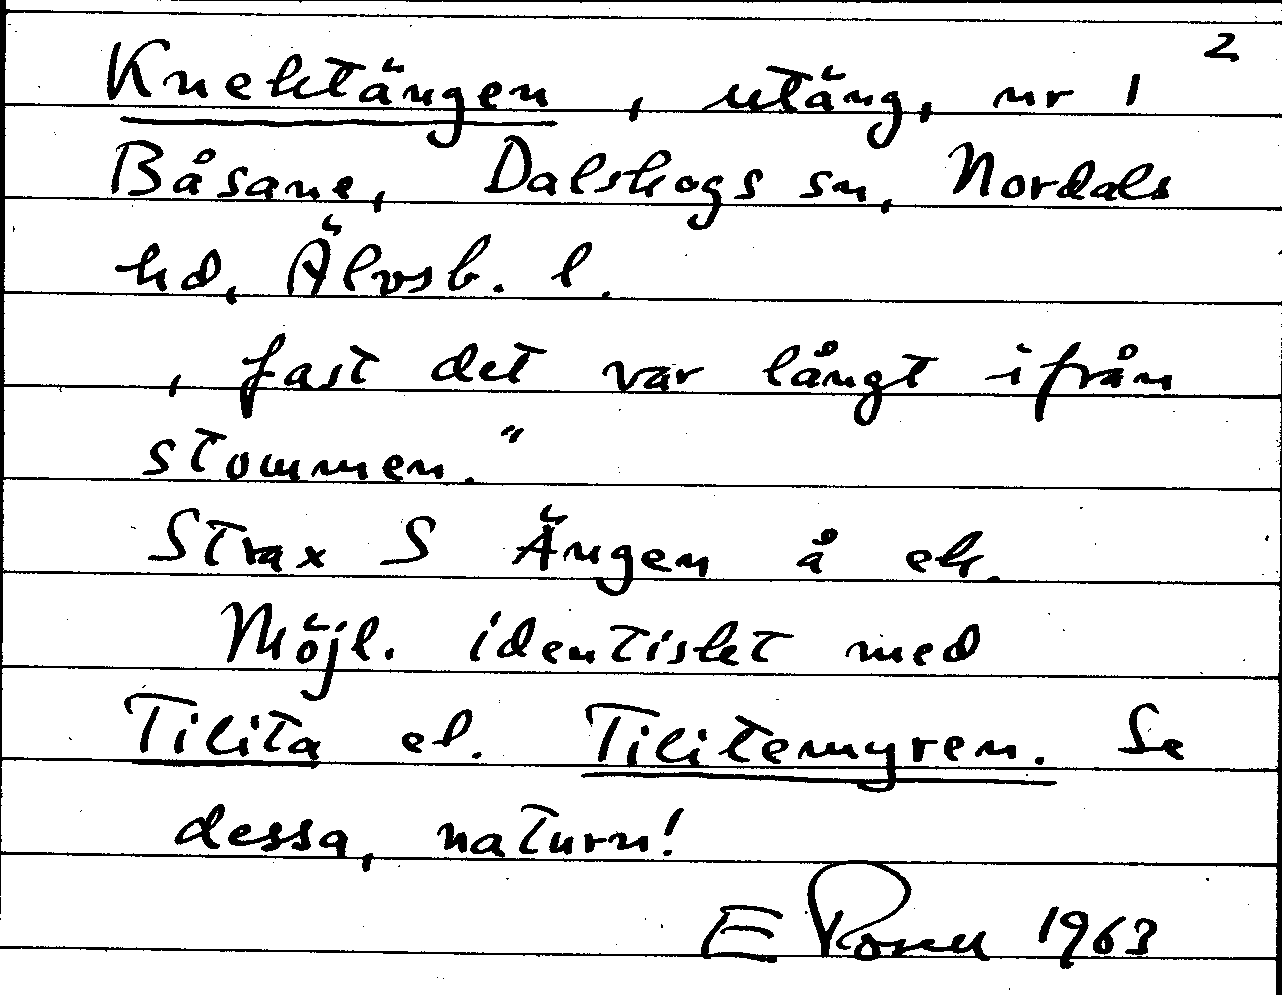 2
Knektängen, utäng, nr 1
Båsane, Dalskogs sn, Nordals
hd, Älvsb. l.
, fast det var långt ifrån
stommen."
Strax S Ängen å ek.
Möjl. identiskt med
Tilita el. Tilitemyren. Se
dessa, naturn!
E Rosell 1963